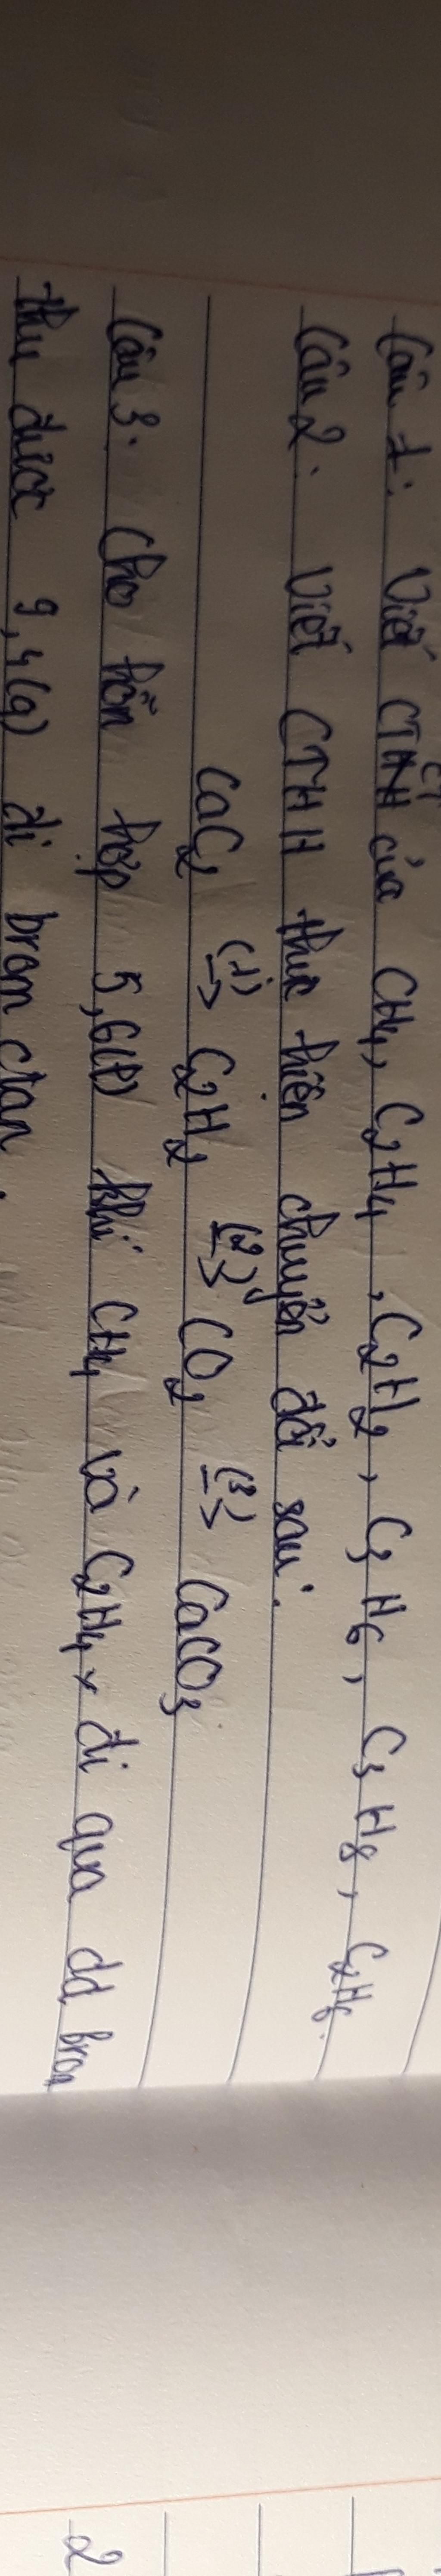 Câu 1: Viết CTCT của CH4, C2H4, C2H2, C3H6, C3H8, C2H6.
Câu 2: Viết CTHH thực hiện chuyển đổi sau:
CaC2 (1)→ C2H2 (2)→ CO2 (3)→ CaCO3
Câu 3: Cho hỗn hợp 5,6(l) khí CH4 và C2H4 đi qua dd brom
thu được 9,4(g) đi brom etan.
2